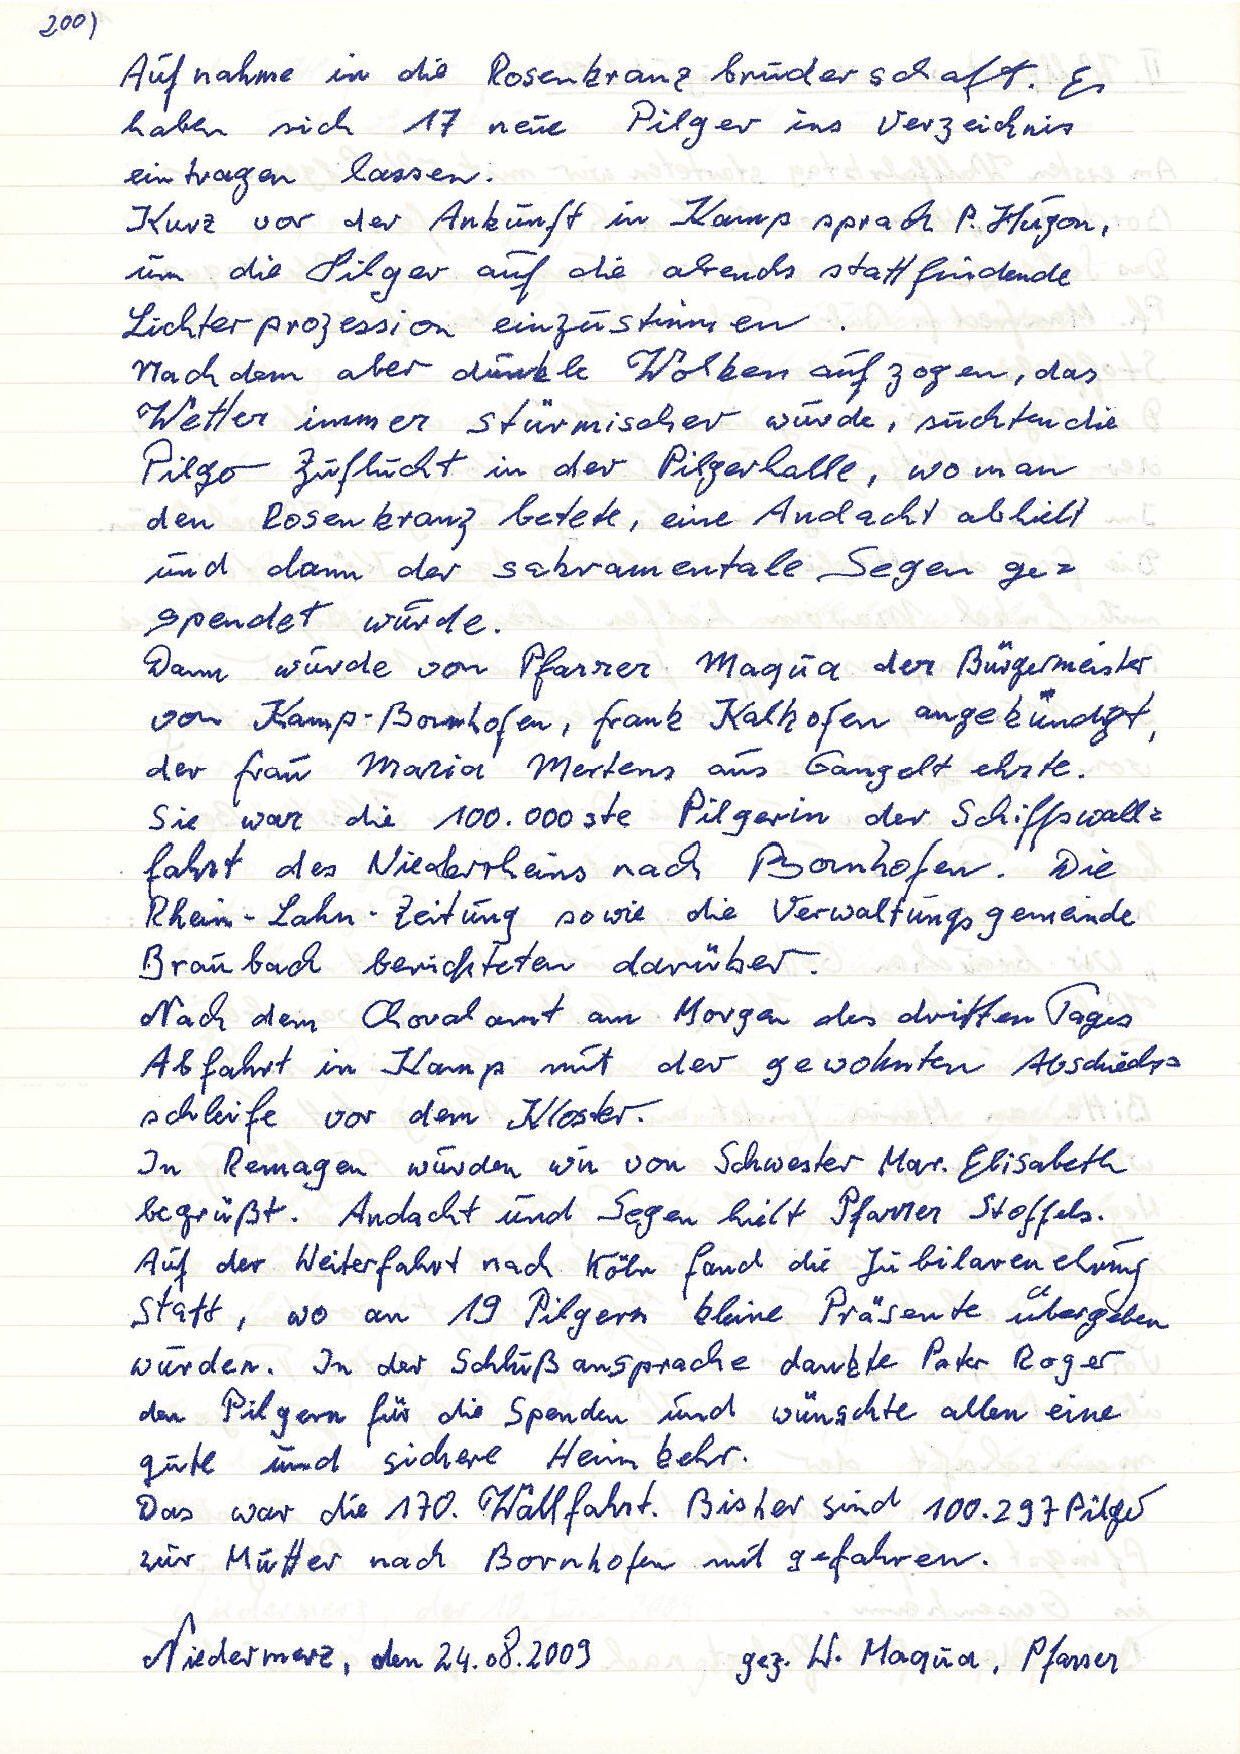 2009
Aufnahme in die Rosenkranzbruderschaft. Es
haben sich 17 neue Pilger ins Verzeichnis
eintragen lassen.
Kurz vor der Ankunft in Kamp sprach P. Hugon,
um die Pilger auf die abends stattfindende
Lichterprozession einzustimmen.
Nachdem aber dunkle Wolken aufzogen, das
Wetter immer stürmischer wurde, suchten die
Pilger Zuflucht in der Pilgerhalle, wo man
den Rosenkranz betete, eine Andacht abhielt
und dann der sakramentale Segen ge=
spendet wurde.
Dann wurde von Pfarrer Maqua der Bürgermeister
von Kamp-Bornhofen, Frank Kalkofen angekündigt,
der Frau Maria Mertens aus Gangelt ehrte.
Sie war die 100.000ste Pilgerin der Schiffswall=
fahrt des Niederrheins nach Bornhofen. Die
Rhein-Lahn-Zeitung sowie die Verwaltungsgemeinde
Braubach berichteten darüber.
Nach dem Choralamt am Morgen des dritten Tages
Abfahrt in Kamp mit der gewohnten Abschieds=
schleife vor dem Kloster.
In Remagen wurden wir von Schwester Mar. Elisabeth
begrüßt. Andacht und Segen hielt Pfarrer Stoffels.
Auf der Weiterfahrt nach Köln fand die Jubilarenehrung
statt, wo an 19 Pilgern kleine Präsente übergeben
wurden. In der Schlußansprache dankte Pater Roger
den Pilgern für die Spenden und wünschte allen eine
gute und sichere Heimkehr.
Das war die 170. Wallfahrt. Bisher sind 100.297 Pilger
zur Mutter nach Bornhofen mit gefahren.
Niedermerz, den 24.08.2009 gez. W. Maqua, Pfarrer